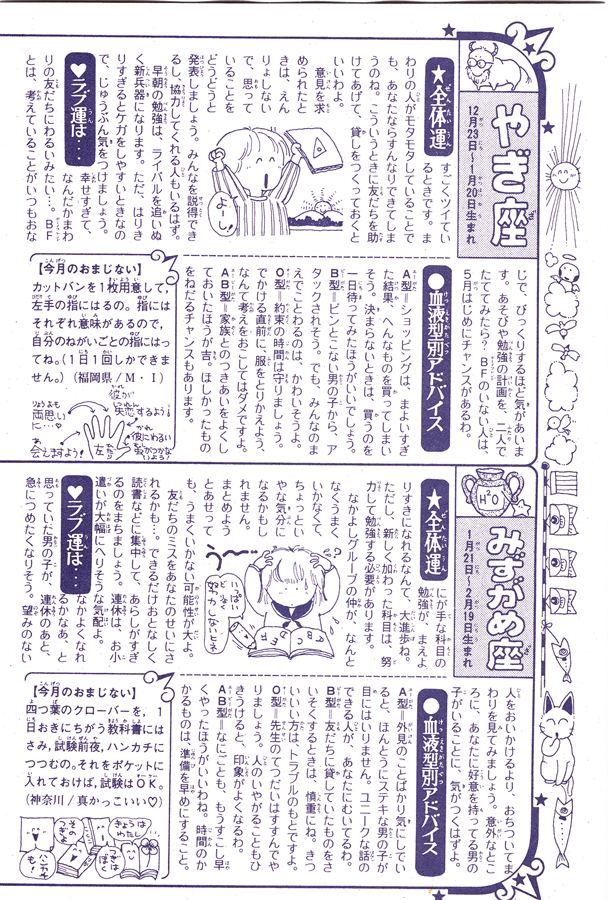 やぎ座
12月23日〜1月20日生まれ
★全体運
すごくツイてい
るときです。ま
わりの人がモタモタしていることで
も、あなたならすんなりできてしま
うのね。こういうときに友だちを助
けてあげて、貸しをつくっておくと
いいわよ。
意見を求
められたと
きは、えん
りょしない
で、思って
いることを
どうどうと
発表しましょう。みんなを説得でき
るし、協力してくれる人もいるはず。
早朝の勉強は、ライバルを追いぬ
く新兵器になります。ただ、はりき
りすぎるとケガをしやすいときなの
で、じゅうぶん気をつけましょう。
よーし!
♥ラブ運は…
幸せすぎて、
なんだかまわ
りの友だちにわるいみたい…。BF
とは、考えていることがいつもおな
じで、びっくりするほど気があいま
す。あそびや勉強の計画を、二人で
たててみたら?BFのいない人は、
5月はじめにチャンスがあるわ。
●血液型別アドバイス
A型=ショッピングは、まよいすぎ
た結果、へんなものを買ってしまい
そう。決まらないときは、買うのを
一日待ってみたほうがいいでしょう。
B型=ピンとこない男の子から、ア
タックされそう。でも、みんなのま
えでことわるのは、かわいそうよ。
O型=約束の時間は守りましょう。
でかける直前に、服をとりかえよう、
なんて考えをおこしてはダメですよ。
AB型=家族とのつきあいをよくし
ておいたほうが吉。ほしかったもの
をねだるチャンスもあります。
【今月のおまじない】
カットバンを1枚用意して,
左手の指にはるの。指には
それぞれ意味があるので,
自分のねがいごとの指にはっ
てね。(1日1回しかできま
せん。)(福岡県/M・I)
彼が
失恋するよう!
両思い
に…
彼にわるい
虫がつかな
いよう!
会えますよう!
左
みずがめ座
1月21日〜2月19日生まれ
H²O
★全体運
にが手な科目の
勉強が、まえよ
りすきになれるなんて、大進歩ね。
ただし、新しく加わった科目は、努
力して勉強する必要があります。
なかよしグループの仲が、なんと
なくうまく
いかなくて、
ちょっとい
やな気分に
なるかもし
れません。
まとめよう
とあせって
も、うまくいかない可能性が大よ。
友だちのミスをあなたのせいにさ
れるかも…。できるだけおとなしく
読書などに集中して、あらしがすぎ
るのをまちましょう。連休は、お小
遣いが大幅にへりそうな気配よ。
う〜〜
いっぱい
努力
しないと
ABCDEF
♥ラブ運は…
なかよくなれ
るかなあ、と
思っていた男の子が、連休のあと、
急につめたくなりそう。望みのない
人をおいかけるより、おちついてま
わりを見てみましょう。意外なとこ
ろに、あなたに好意を持ってる男の
子がいることに、気がつくはずよ。
●血液型別アドバイス
A型=外見のことばかり気にしてい
ると、ほんとうにステキな男の子が
目にはいりません。ユニークな話の
できる人が、あなたにむいてるわ。
B型=友だちに貸していたものをさ
いそくするときは、慎重にね。きつ
いいい方は、トラブルのもとですよ。
O型=先生のてつだいはすすんでや
りましょう。人のいやがることもひ
きうけると、印象がよくなるわ。
AB型=なにごとも、もうすこし早
くやったほうがいいわね。時間のか
かるものは、準備を早めにすること。
【今月のおまじない】
四つ葉のクローバーを,1
日おきにちがう教科書には
さみ,試験前夜,ハンカチに
つつむの。それをポケットに
入れておけば,試験はOK。
(神奈川/真かっこいい♡)
きょうは
わたし…
その
つぎよ
つぎは
ぼく
ハンカチ
も!